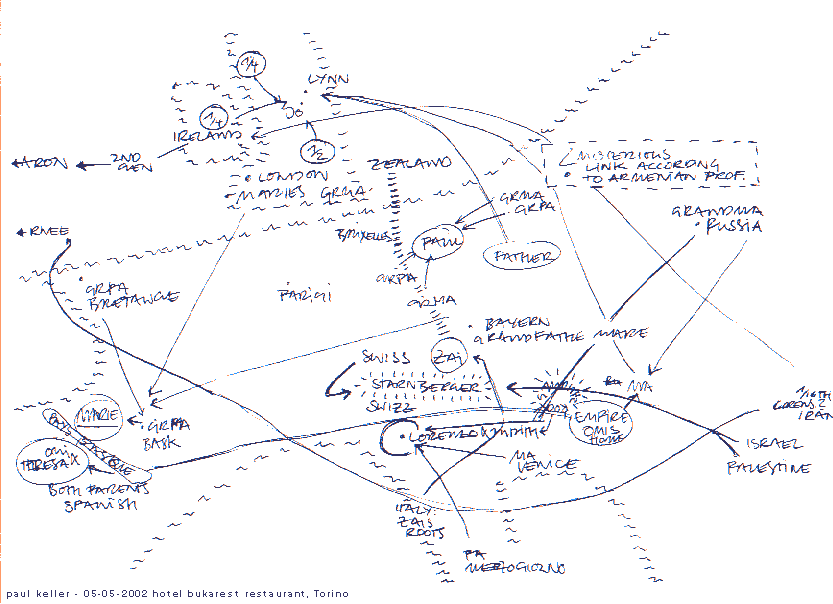 1/4
LYNN
JO
1/4
IRELAND
1/2
ARON
2ND
GEN
ZEALAND
LONDON
MARIES GRMA
MISTERIOUS
LINK ACCORDNG
TO ARMENIAN PROF.
GRMA
GRPA
GRANDMA
RUSSIA
RNEE
BRUXELLES
PAUL
FATHER
GRPA
BRETANGE
PARIGI
GRPA
GRMA
BAYERN
GRANDFATHE
SWISS
ZAI
STARNBERGER
SWIZZ
MA
MARIE
GRPA
BASK
EMPIRE
OMIS
HOME
IRAN
ISRAEL
PALESTINE
BOTH PARENTS
SPANISH
MA
VENICE
ITALY
ZAIS
ROOTS
PA
MEZZOGIORNO
paul keller - 05-05-2002 hotel bukarest restaurant, Torino